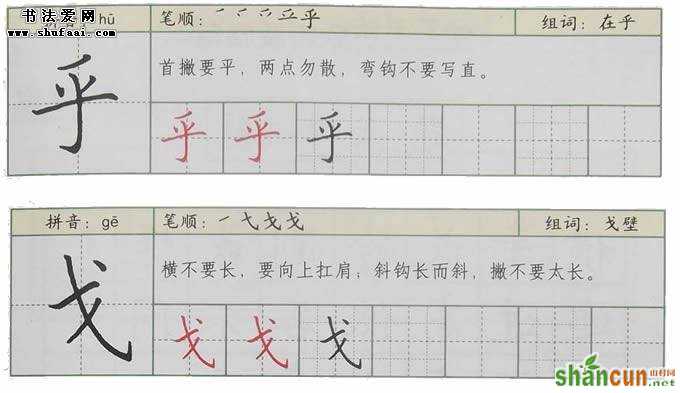 书法爱网
www.shufaai.com
拼音：hū 笔顺： 乎 组词：在乎
首撇要平，两点勿散，弯钩不要写直。
乎 乎 乎 乎
拼音：gē 笔顺：一 弋 戈 戈 组词：戈壁
横不要长，要向上扛肩；斜钩长而斜，撇不要太长。
戈 戈 戈 戈
shancun 山村网
.net